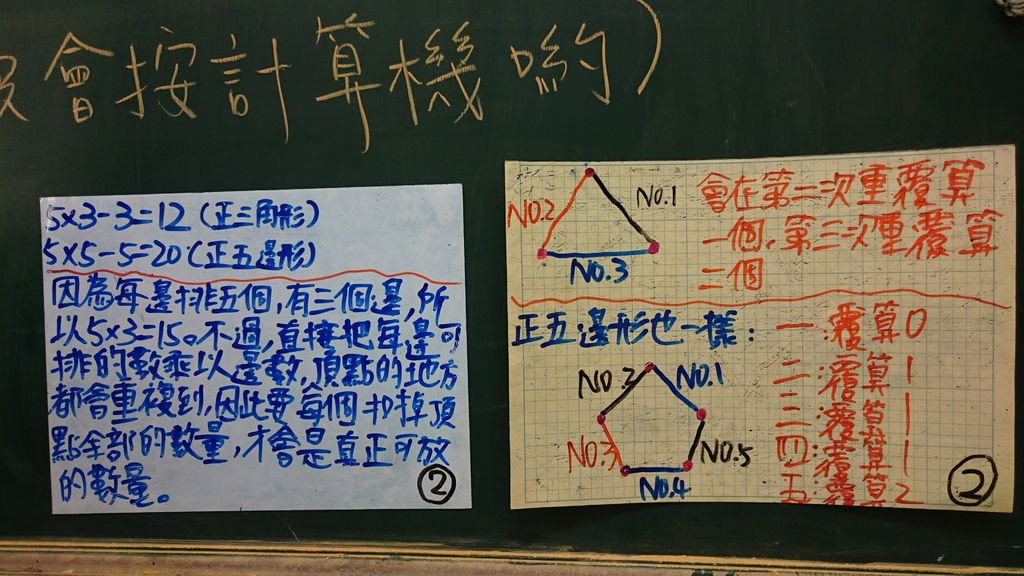 會按計算機喲)
5×3-3=12(正三角形)
5×5-5=20(正五邊形)
因為每邊排五個,有三個邊,所
以5×3=15。不過,直接把每邊可
排的數乘以邊數,頂點的地方
都會重複到,因此要每個扣掉頂
點全部的數量,才會是真正可放
的數量。
②
NO.1
NO.2
NO.3
會在第二次重覆算
一個,第三次重覆算
二個
正五邊形也一樣:
一覆算0
二覆算1
三覆算1
四覆算1
五覆算2
NO.2
NO.1
NO.3
NO.5
NO.4
②